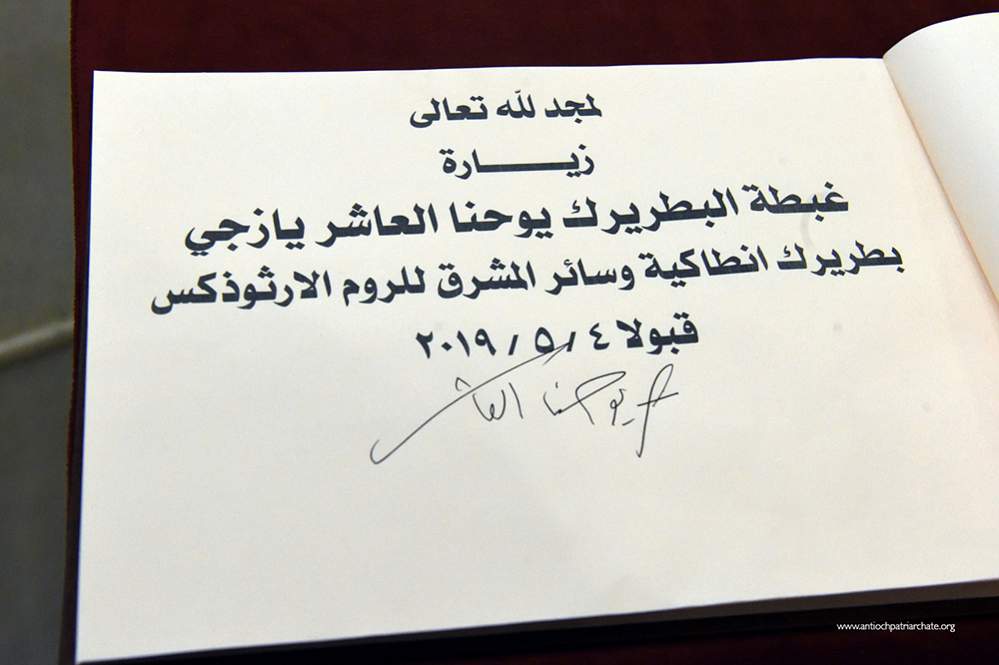 لمجد لله تعالى
زيـــــــــارة
غبطة البطريرك يوحنا العاشر يازجي
بطريرك انطاكية وسائر المشرق للروم الارثوذكس
قبولا ٤ / ٥ / ٢٠١٩
يوحنا العاشر
www.antiochpatriarchate.org